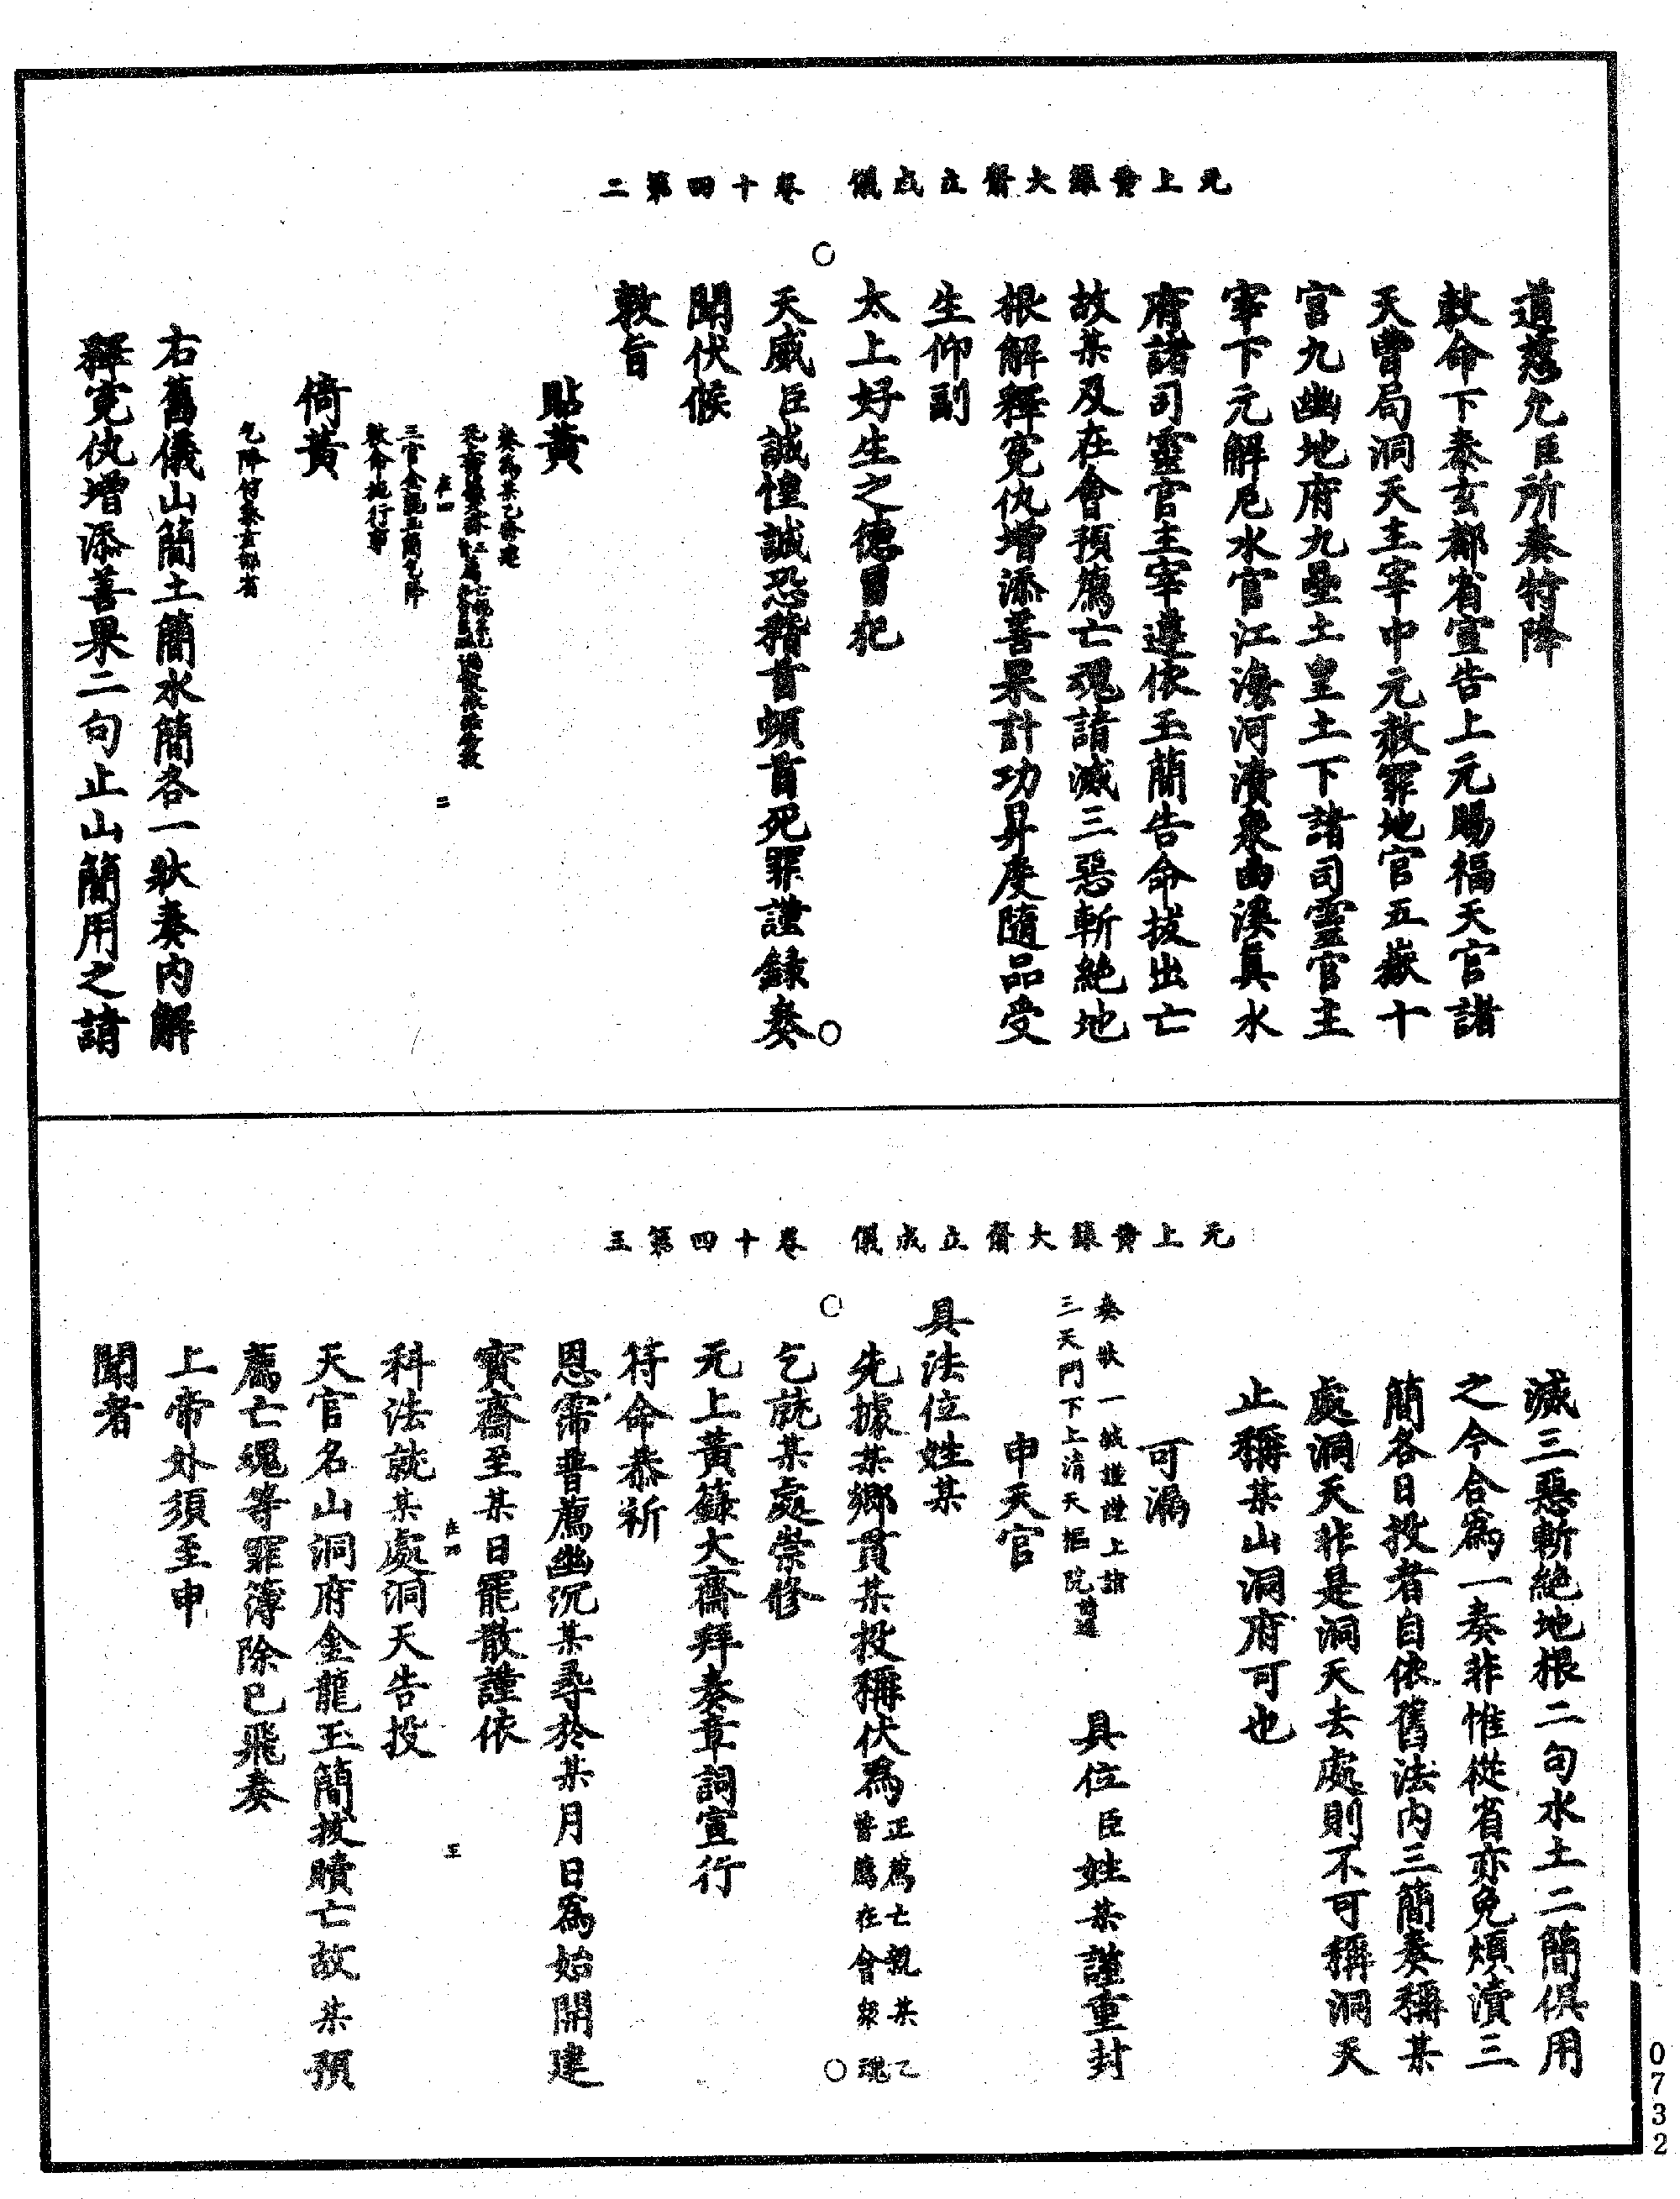 元上黃籙大齋立成儀　卷十四第二
道慈允臣所奏特降
敕命下泰玄都省宣告上元賜福天官諸
天曹局洞天主宰中元赦罪地官五嶽十
宫九幽地府九壘土皇土下諸司靈官主
宰下元解厄水官江海河瀆泉曲溪眞水
府諸司靈官主宰遵依玉簡告命拔出亡
故某及在會預薦亡魂諸滅三惡斬絶地
根解釋寃仇增添善果計功昇度隨品受
生仰副
太上好生之德冒犯
天威臣誠惶誠恐稽首頓首死罪謹錄奏
聞伏候
敕旨
貼黃
奏爲某乙齋建
三官金龍玉簡乞降
敕命施行事
倚黃
乞降付泰玄都省
右舊儀山簡土簡水簡各一狀奏内解
釋寃仇增添善果二句止山簡用之諸
元上黃籙大齋立成儀　卷十四第三
滅三惡斬絶地根二句水土二簡俱用
之今合爲一奏非惟從省亦免煩瀆三
簡各日投者自依舊法内三簡奏稱某
處洞天非是洞天去處則不可稱洞天
止稱某山洞府可也
可漏
奏狀一緘謹謹上詣
三天門下上清天樞院　具位臣姓某謹重封
申天官
具法位姓某
先據某鄉貫某投稱伏爲正薦亡親某乙普薦在會衆魂
乞就某處崇修
元上黃籙大齋拜奏章詞宣行
符命恭祈
恩霈普薦幽沉某尋於某月日爲始開建
寶齋至某日罷散謹依
科法就某處洞天告投
天官名山洞府金龍玉簡拔贖亡故某預
薦亡魂等罪簿除已飛奏
上帝外須至申
聞者
0732